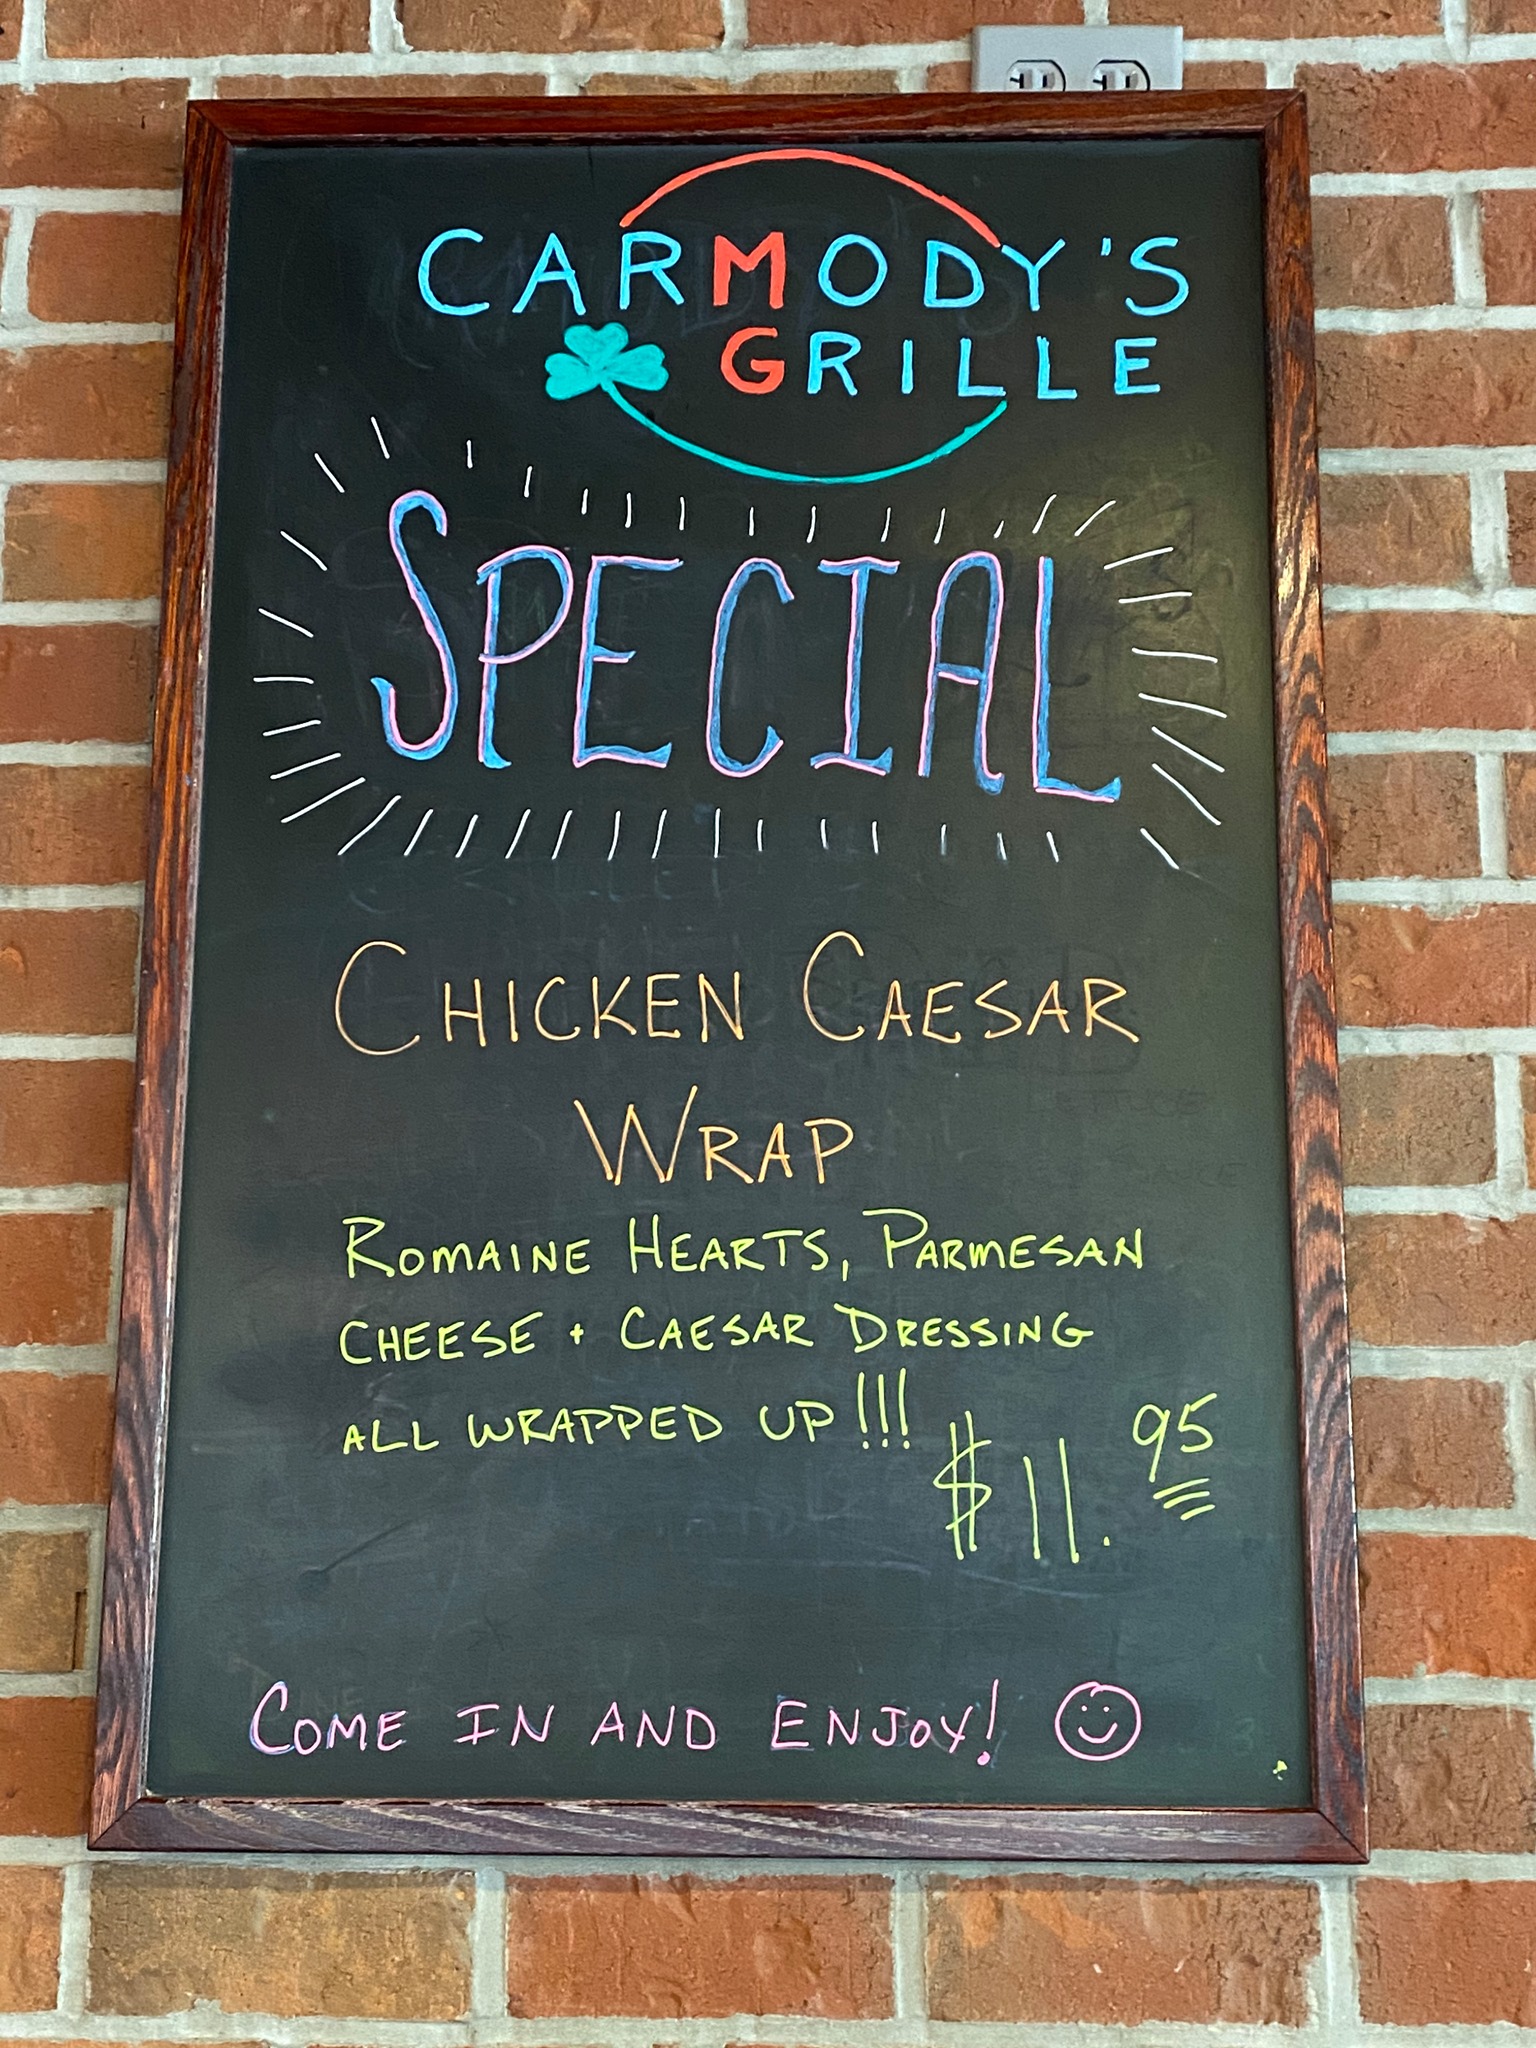 CARMODY'S
GRILLE
SPECIAL
CHICKEN CAESAR
WRAP
ROMAINE HEARTS, PARMESAN
CHEESE + CAESAR DRESSING
ALL WRAPPED UP!!!
$11.95
COME IN AND ENJOY!